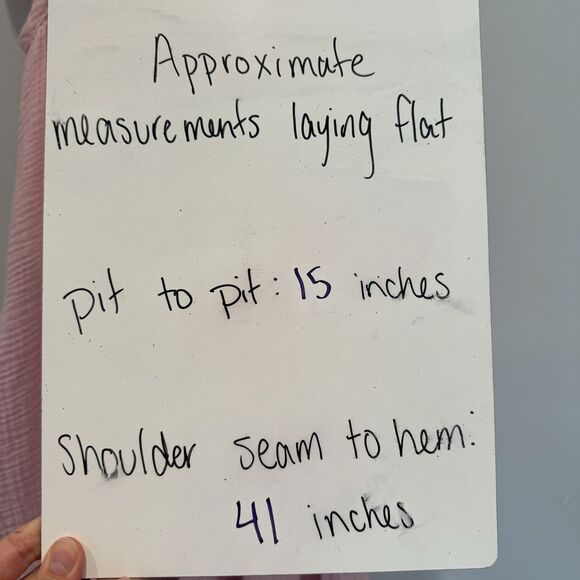 Approximate
measurements laying flat
pit to pit: 15 inches
Shoulder seam to hem:
41 inches